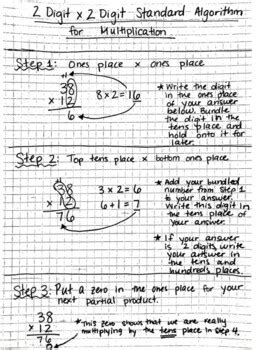 2 Digit x 2 Digit Standard Algorithm
for Multiplication
Step 1: Ones place x ones place
+1
38
x 12
6
8 x 2 = 16
* Write the digit
in the ones place
of your answer
below. Bundle
the digit in the
tens place and
hold onto it for
later.
Step 2: Top tens place x bottom ones place
+1
38
x 12
76
3 x 2 = 6
6 + 1 = 7
* Add your bundled
number from Step 1
to your answer.
Write this digit in
the tens place of
your answer.
* If your answer
is 2 digits, write
your answer in
the tens and
hundreds places.
Step 3: Put a zero in the ones place for your
next partial product.
38
x 12
76
* This zero shows that we are really
multiplying by the tens place in Step 4.